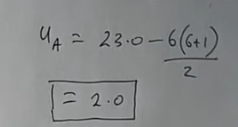 U_A = 23.0 - 6(6+1)/2
= 2.0